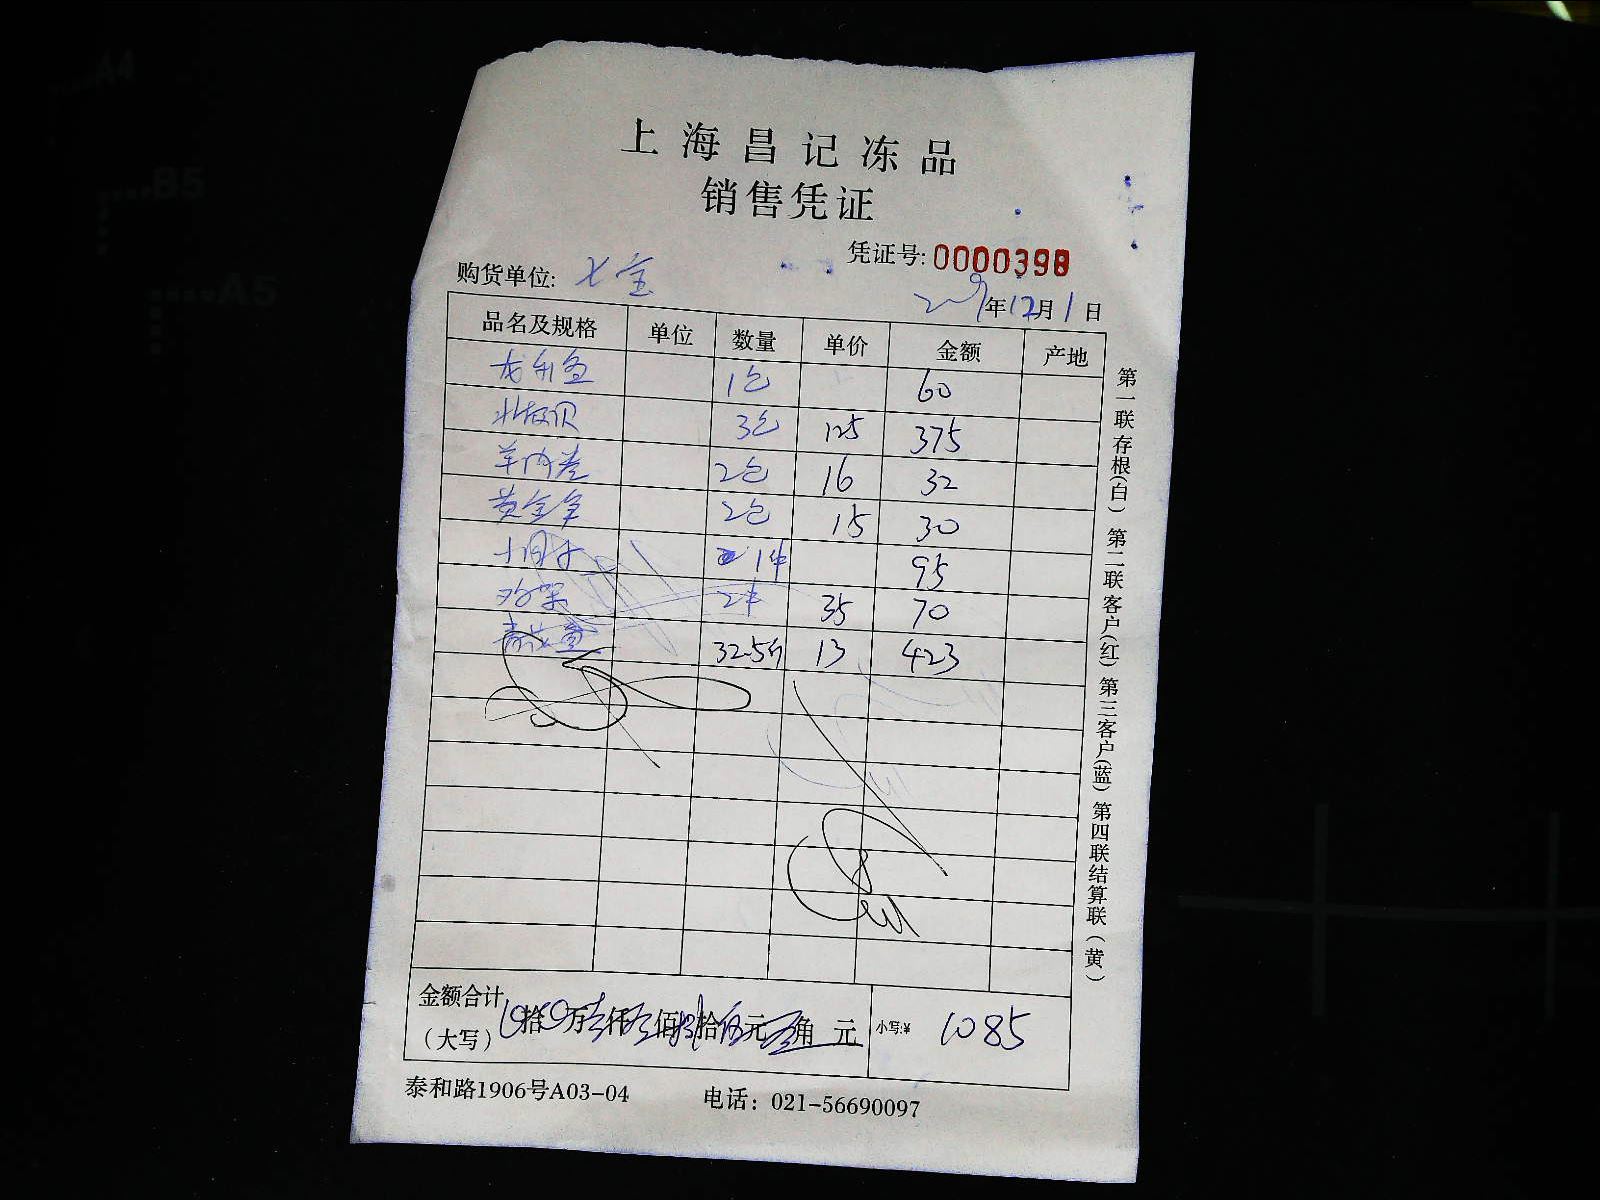 上海昌记冻品
销售凭证
凭证号: 0000398
购货单位: 七宝
2009年12月1日
品名及规格 单位 数量 单价 金额 产地
龙利鱼 1包 60
北极贝 3包 125 375
羊肉卷 2包 16 32
黄金 2包 15 30
1件 95
鸡架 2件 35 70
32.5斤 13 423
金额合计
(大写) 拾 万 仟 佰 拾 元 角 元 小写:¥ 1085
泰和路1906号A03-04 电话: 021-56690097
第一联存根(白) 第二联客户(红) 第三客户(蓝) 第四联结算联(黄)
A4
B5
A5